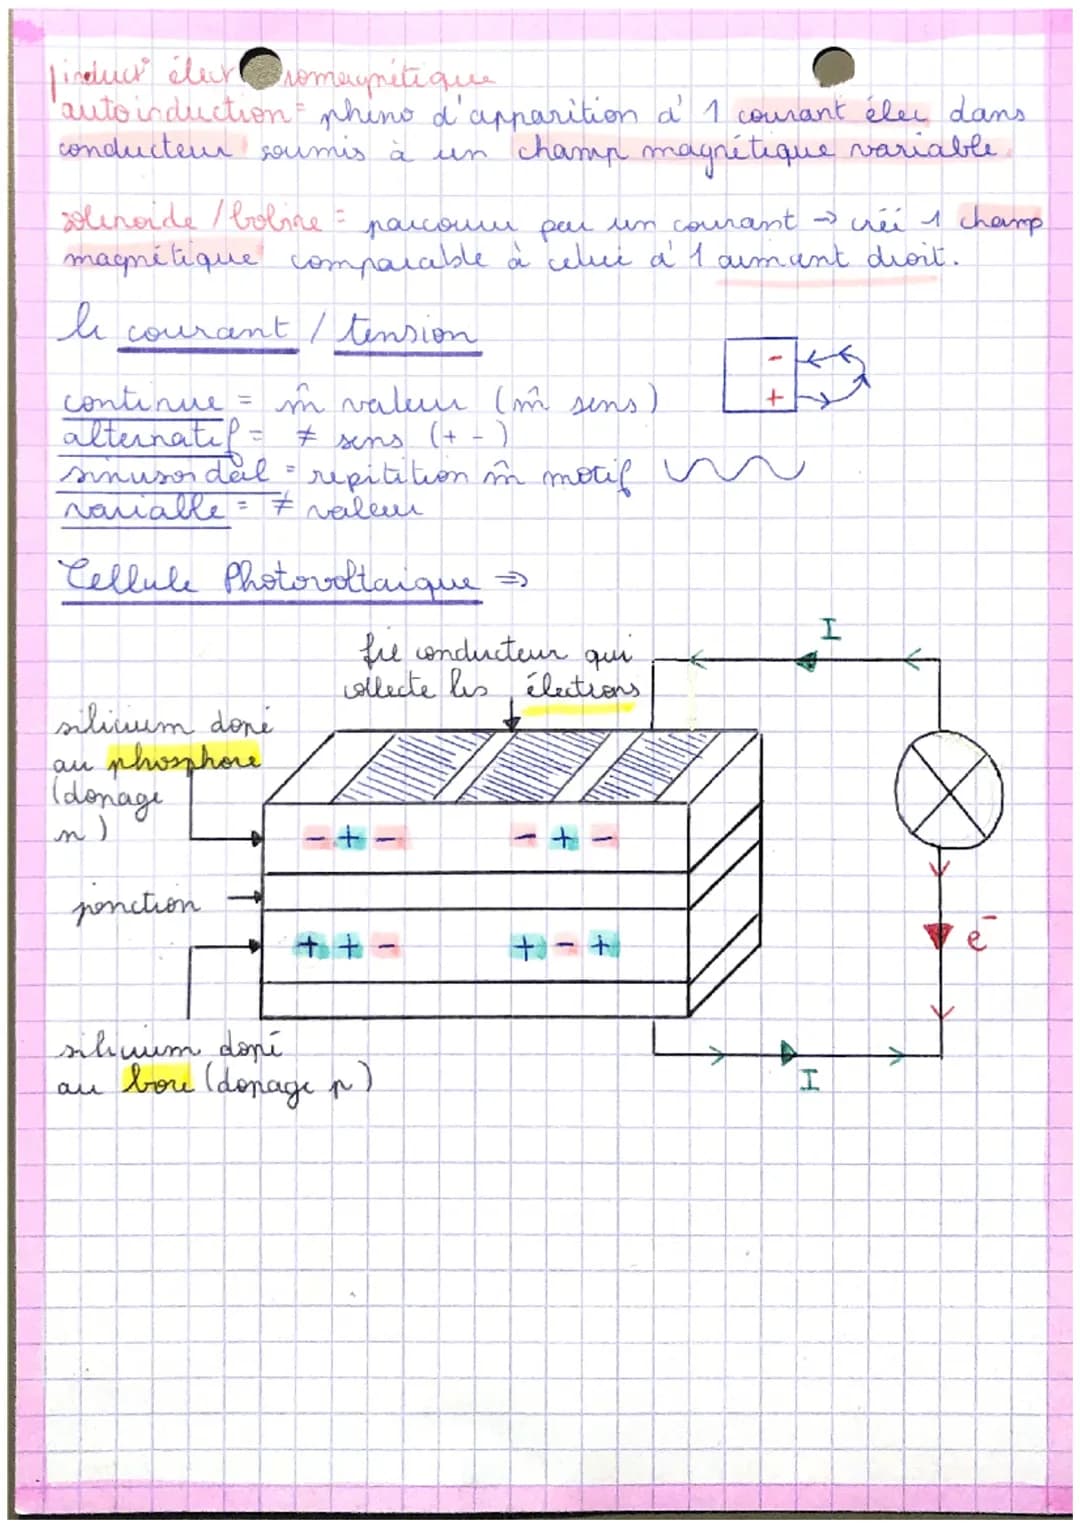 induct° électromagnétique
autoinduction = phéno d'apparition d'1 courant élec dans
conducteur soumis à un champ magnétique variable.
solenoide / bobine = parcouru par un courant → créé 1 champ
magnétique comparable à celui d'1 aimant droit.
le courant / tension
continue = m̂ valeur (m̂ sens)
alternatif = ≠ sens (+ -)
sinusoïdal = répétition m̂ motif
variable = ≠ valeur
-
+
Cellule Photovoltaïque ⇒
I
fil conducteur qui
collecte les électrons
silicium dopé
au phosphore
(dopage
n)
- + - - + -
jonction
+ + - + - +
e⁻
silicium dopé
au bore (dopage p)
I